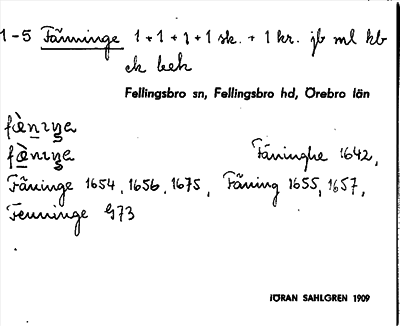 1-5 Fänninge 1+1+1+1 sk. + 1 kr. jb ml kb
ek bek
Fellingsbro sn, Fellingsbro hd, Örebro län
fæ̀nıŋa
fæ̀nıŋa Fäninghe 1642,
Fäninge 1654, 1656, 1675, Fäning 1655, 1657,
Fenninge G73
JÖRAN SAHLGREN 1909